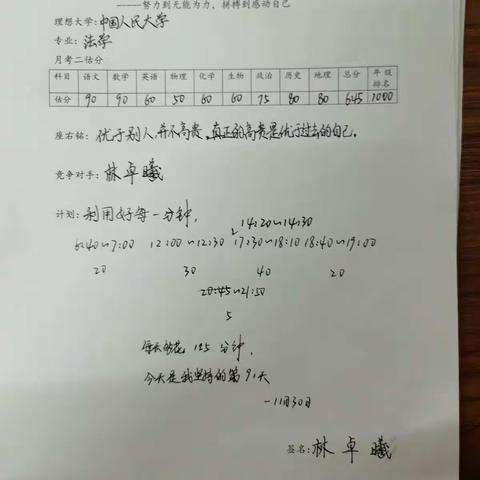 ——努力到无能为力，拼搏到感动自己
理想大学：中国人民大学
专业：法学
月考二估分
科目 语文 数学 英语 物理 化学 生物 政治 历史 地理 总分 年级排名
估分 90 90 60 50 60 60 75 80 80 645 1000
座右铭：优于别人，并不高贵，真正的高贵是优于过去的自己。
竞争对手：林卓曦
计划：利用好每一分钟，
14:20~14:30
6:40~7:00 12:00~12:30 17:30~18:10 18:40~19:00
20 30 40 20
20:45~21:50
5
每天多花 125 分钟，
今天是我坚持的第91天
-11月30日
签名：林卓曦